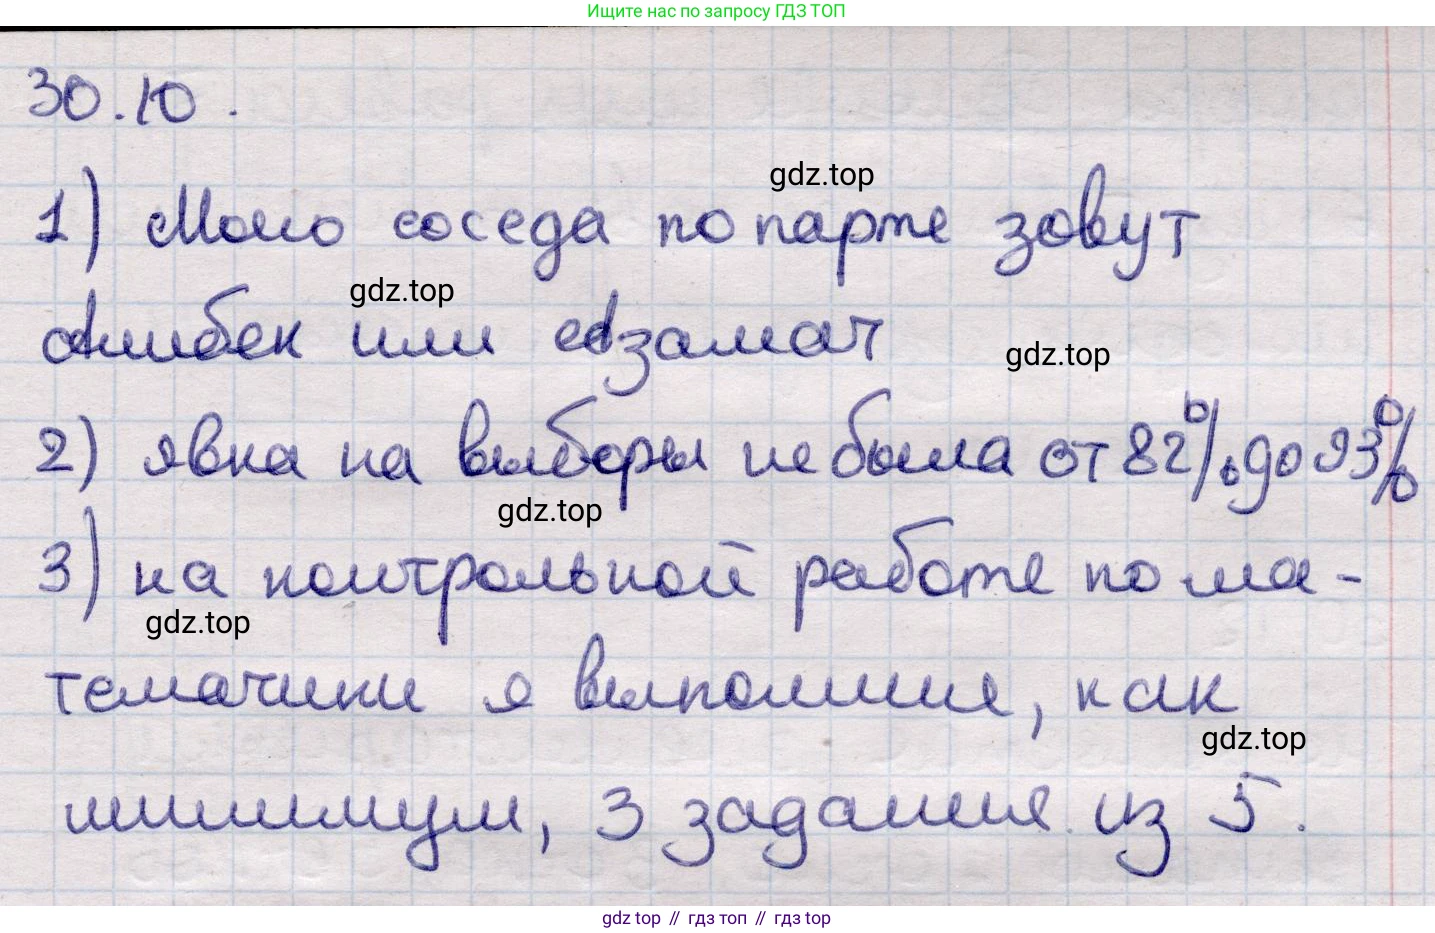 Ищите нас по запросу ГДЗ ТОП
30.10.
1) Моего соседа по парте зовут
gdz.top
Алибек или Азамат
gdz.top
gdz.top
2) явка на выборы не была от 82% до 93%
gdz.top
3) на контрольной работе по ма-
gdz.top
тематики я выполнил, как
gdz.top
минимум, 3 задания из 5.
gdz.top // гдз топ // гдз top